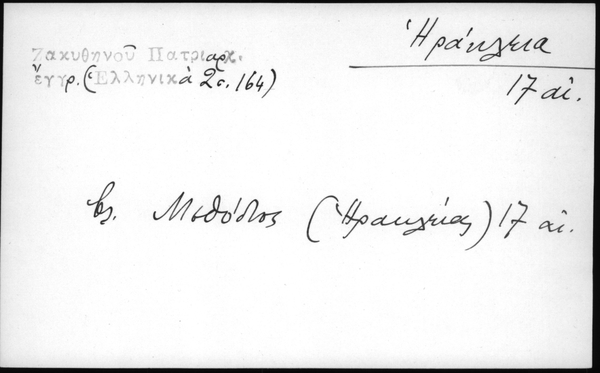 Ἡράκλεια
17 αἰ.
Ζακυθηνοῦ Πατριαρχ.
ἔγγρ. (Ἑλληνικὰ 2 σ. 164)
βλ. Μεθόδιος (Ἡρακλείας) 17 αἰ.